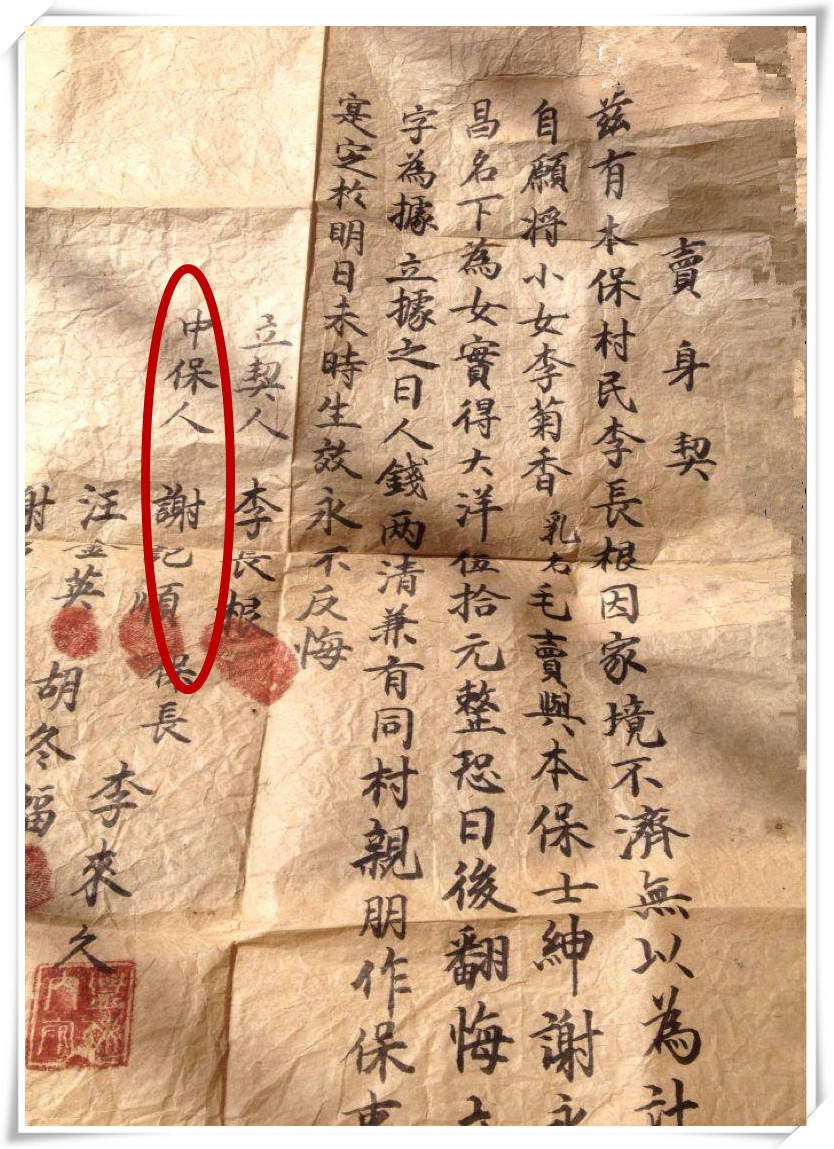 賣身契
茲有本保村民李長根因家境不濟無以為計
自願将小女李菊香乳名毛賣與本保士紳謝永
昌名下為女實得大洋伍拾元整恐日後翻悔立
字為據立據之日人錢两清兼有同村親朋作保
寔定於明日未時生效永不反悔
立契人 李長根
中保人 謝記順 保長 李來久
汪金英 胡冬福